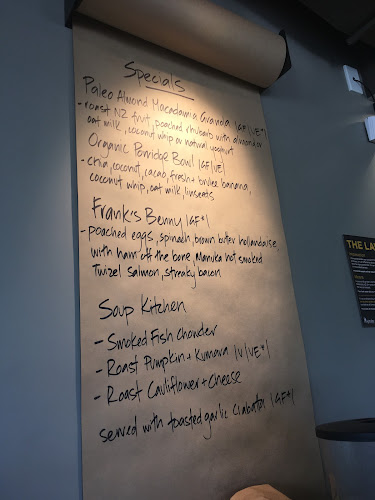 Specials
Paleo Almond Macadamia Granola |GF|VE*|
- roast NZ fruit, poached rhubarb with almond or
oat milk, coconut whip or natural yoghurt
Organic Porridge Bowl |GF|VE|
- chia, coconut, cacao, fresh + brulee banana,
coconut whip, oat milk, linseeds
Frank's Benny |GF*|
- poached eggs, spinach, brown butter hollandaise
with ham off the bone, Manuka hot smoked
Twizel Salmon, streaky bacon
Soup Kitchen
- Smoked Fish Chowder
- Roast Pumpkin + Kumara |V|VE*|
- Roast Cauliflower + Cheese
served with toasted garlic Ciabatta |GF*|
THE LA